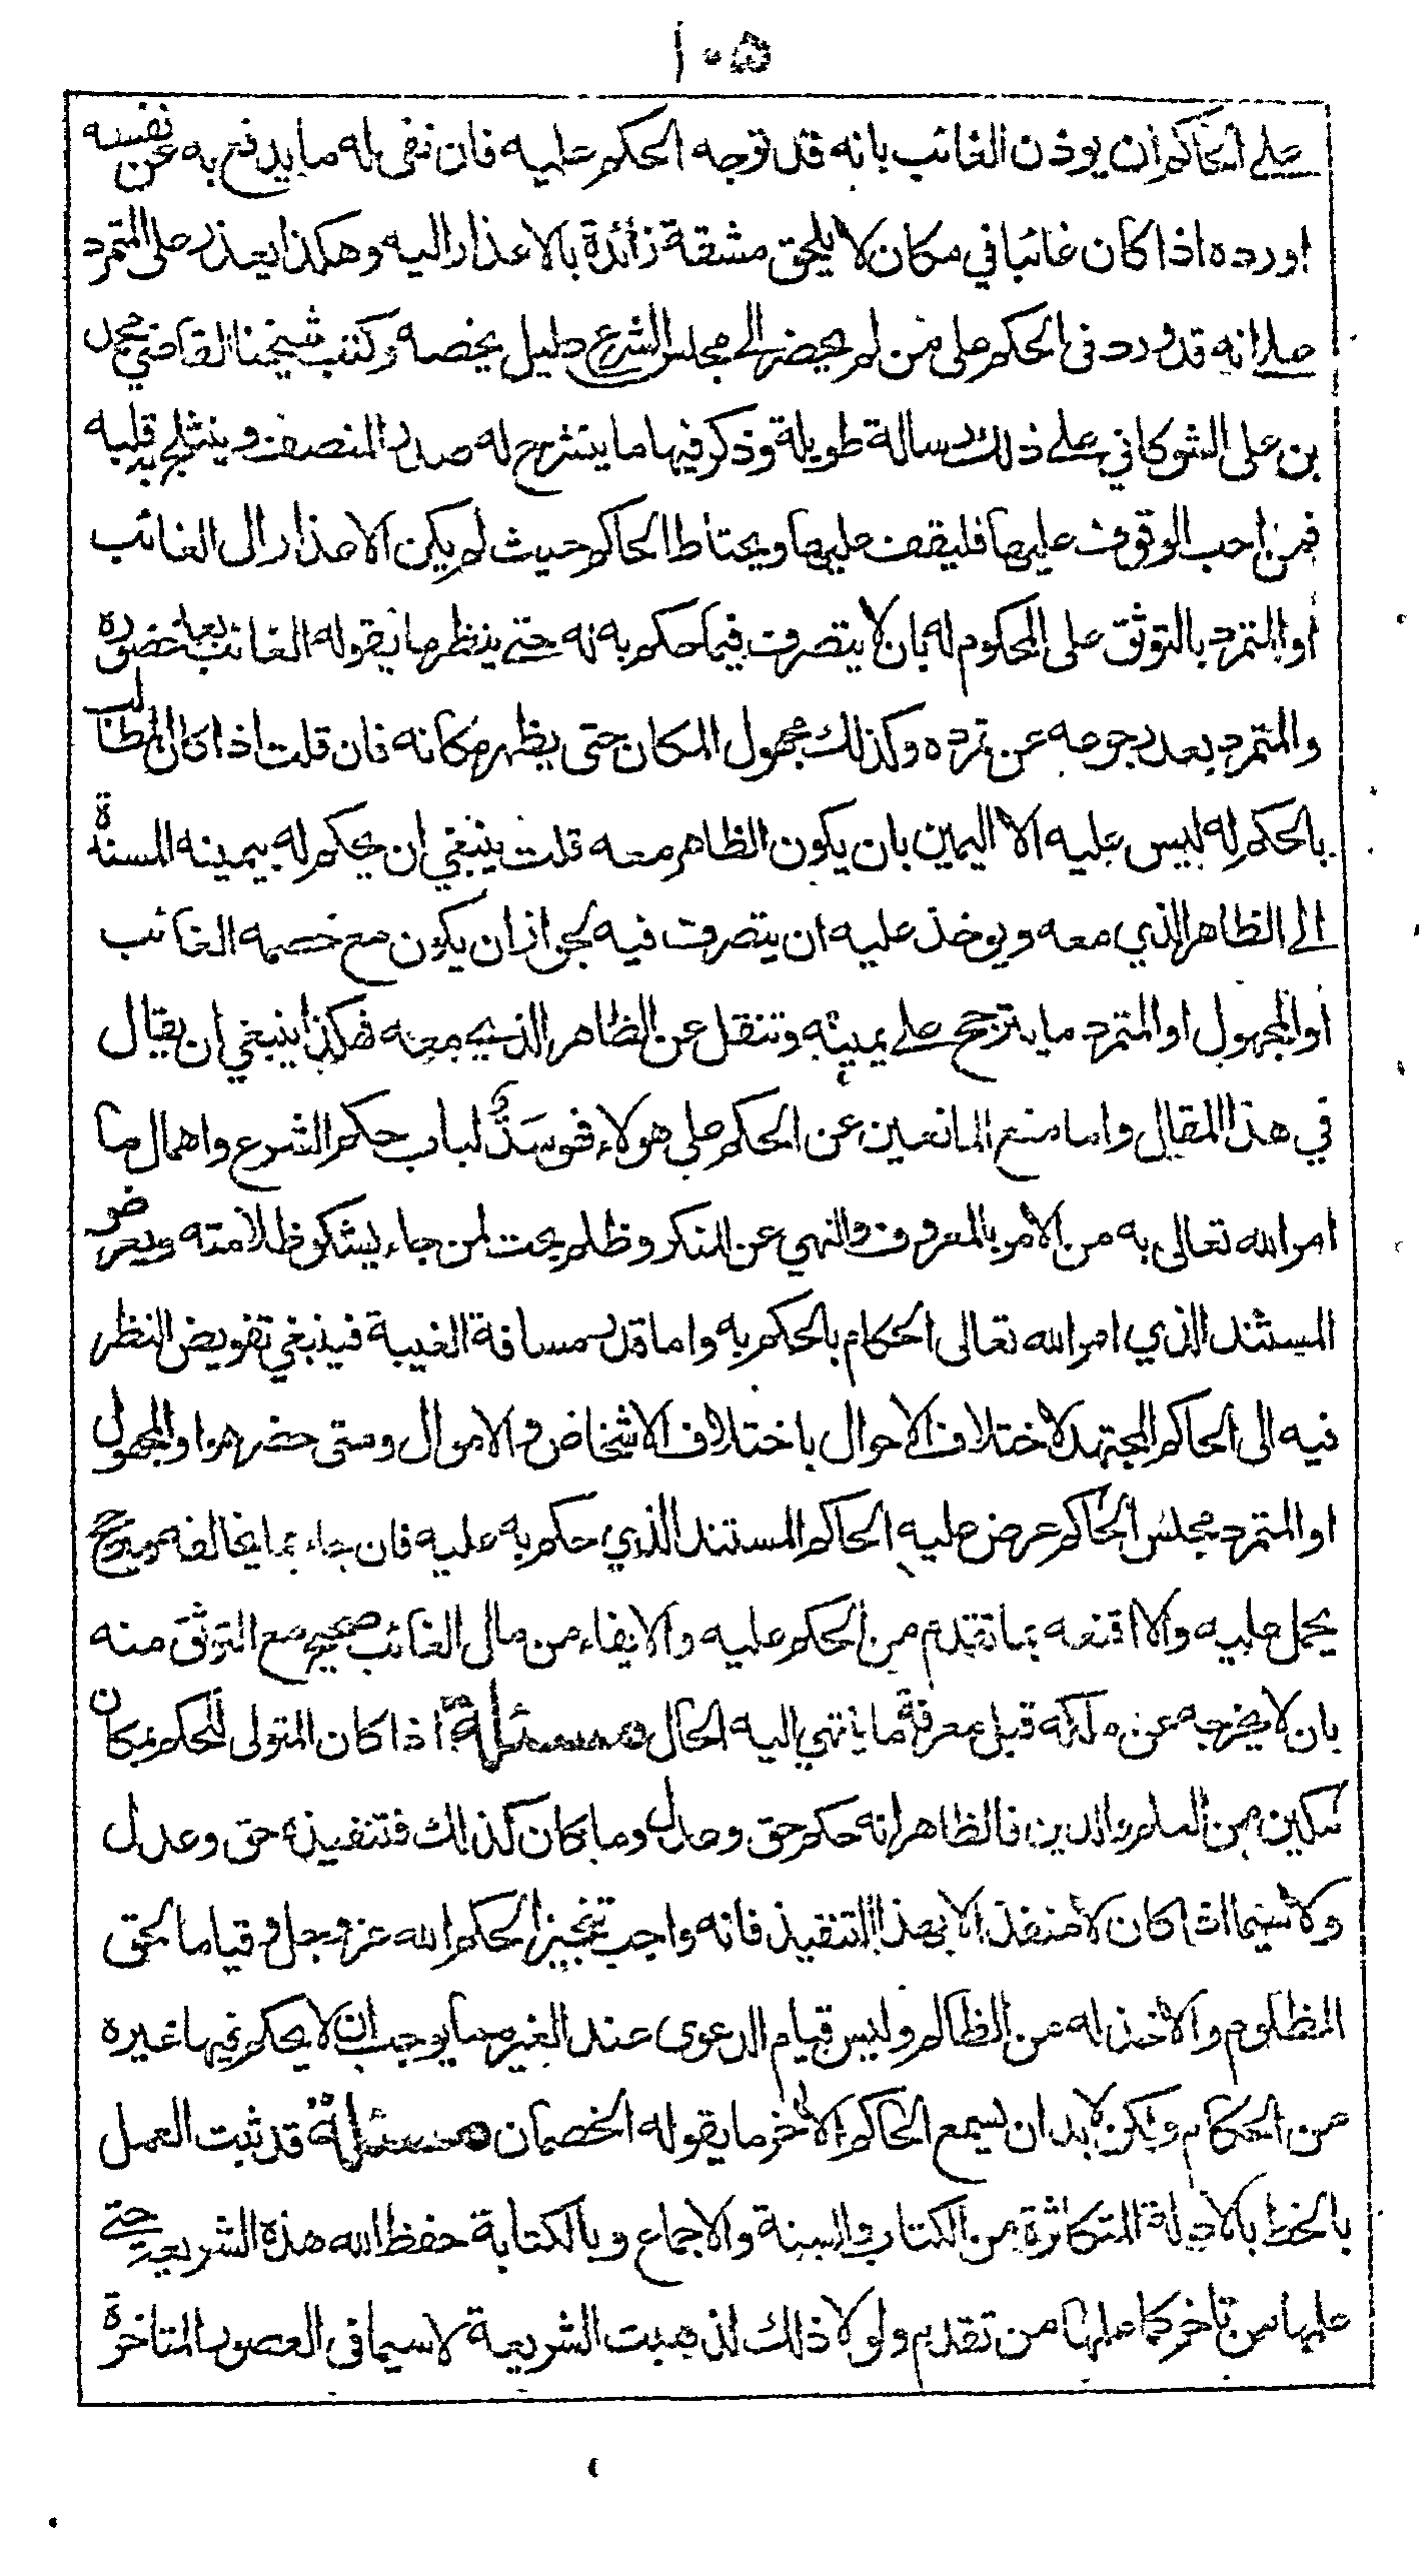 ١٠٥
على الحاكم ان يوذن الغائب بانه قد توجه الحكم عليه فان نفى له ما يدفع به عن نفسه
اورده اذا كان غائبا في مكان لا يلحق مشقة زائدة بالاعذار اليه وهكذا يعذر على المتمرد
على انه قد ورد فى الحكم على من لم يحضر الى مجلس الشرع دليل يخصه وكتب شيخنا القاضي محمد
بن على الشوكاني على ذلك رسالة طويلة وذكر فيها ما ينشرح له صدر المنصف ويثلج به قلبه
فمن احب الوقوف عليها فليقف عليها ويحتاط الحاكم حيث لم يكن الاعذار الى الغائب
أو المتمرد بالتوثق على المحكوم له بان لا يتصرف فيما حكم به له حتى ينظر ما يقوله الغائب بعد حضوره
والمتمرد بعد رجوعه عن تمرده وكذلك مجهول المكان حتى يظهر مكانه فان قلت اذا كان المطالب
بالحكم له ليس عليه الا اليمين بان يكون الظاهر معه قلت ينبغي ان يحكم له بيمينه المسندة
الى الظاهر الذي معه ويوخذ عليه ان يتصرف فيه لجواز ان يكون مع خصمه الغائب
أو المجهول او المتمرد ما يترجح على يمينه وتنقل عن الظاهر الذي معه فهكذا ينبغي ان يقال
في هذا المقال واما منع المانعين عن الحكم على هولاء فهو سَدٌّ لباب حكم الشرع واهمال ما
امر الله تعالى به من الامر بالمعروف والنهي عن المنكر وظلم بحت لمن جاء يشكو ظلامته ويعرض
المستند الذي امر الله تعالى الحكام بالحكم به واما قدر مسافة الغيبة فينبغي تفويض النظر
فيه الى الحاكم المجتهد لاختلاف الاحوال باختلاف الاشخاص والاموال ومتى حضر هو او المجهول
او المتمرد مجلس الحاكم عرض عليه الحاكم المستند الذي حكم به عليه فان جاء بما يخالفه ويرجح
يحمل عليه والا اقنعه بما تقدم من الحكم عليه والايفاء من مال الغائب صحيح مع التوثق منه
بان لا يخرجه عن ملكه قبل معرفة ما ينتهي اليه الحال مسئلة اذا كان المتولى للحكم بمكان
مكين من العلم والدين فالظاهر انه حكم حق وعدل وما كان كذلك فتنفيذه حق وعدل
ولا سيما اذا كان لا منفذ الا بهذا التنفيذ فانه واجب تنجيز الحكم الله عز وجل وقياما لحق
المظلوم والاخذ له من الظالم وليس قيام الدعوى عند الغير مما يوجب ان لا يحكم فيها غيره
من الحكام ولكن لا بد ان يسمع الحاكم الاخر ما يقوله الخصمان مسئلة قد ثبت العمل
بالخط بالادلة المتكاثرة من الكتاب والسنة والاجماع وبالكتابة حفظ الله هذه الشريعة حتى
علمها من تاخر كما علمها من تقدم ولولا ذلك لذهبت الشريعة لا سيما فى العصور المتاخرة